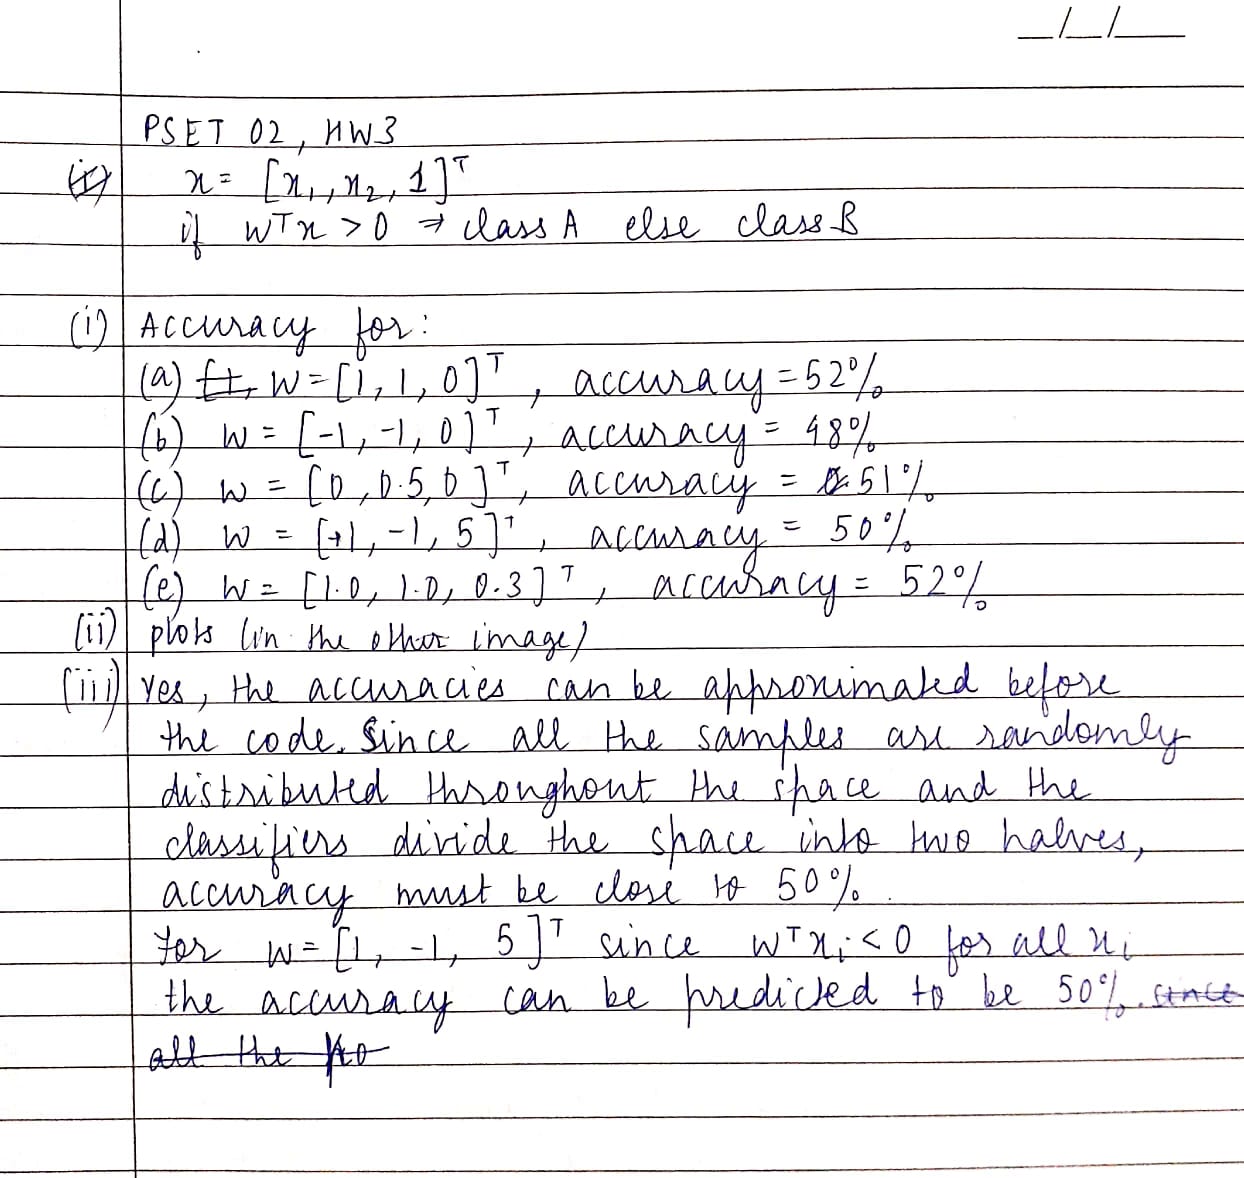 _/_/_
PSET 02, HW3
x = [x₁, x₂, 1]ᵀ
if wᵀx > 0 → class A else class B
(i) Accuracy for:
(a) w = [1, 1, 0]ᵀ, accuracy = 52%
(b) w = [-1, -1, 0]ᵀ, accuracy = 48%
(c) w = [0, 0.5, 0]ᵀ, accuracy = 51%
(d) w = [+1, -1, 5]ᵀ, accuracy = 50%
(e) w = [1.0, 1.0, 0.3]ᵀ, accuracy = 52%
(ii) plots (in the other image)
(iii) Yes, the accuracies can be approximated before
the code. Since all the samples are randomly
distributed throughout the space and the
classifiers divide the space into two halves,
accuracy must be close to 50%.
For w = [1, -1, 5]ᵀ since wᵀxᵢ < 0 for all xᵢ
the accuracy can be predicted to be 50%. since
all the